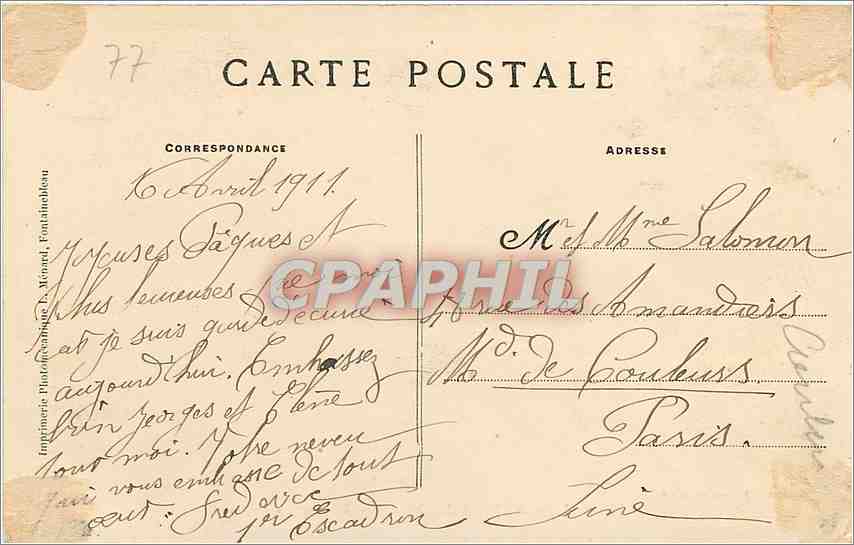 77
CARTE POSTALE
CORRESPONDANCE
16 Avril 1911.
Joyeuses Pâques et
plus heureuses que moi
car je suis garde d'écurie
aujourd'hui. Embrassez
bien Georges et
pour moi. Votre neveu
qui vous embrasse de tout
cœur. Frédéric
1er Escadron
ADRESSE
Mr et Mme Salomon
rue des Amandiers
Md. de Couleurs.
Paris.
Seine
Imprimerie Photomécanique L. Ménard, Fontainebleau
CPAPHIL